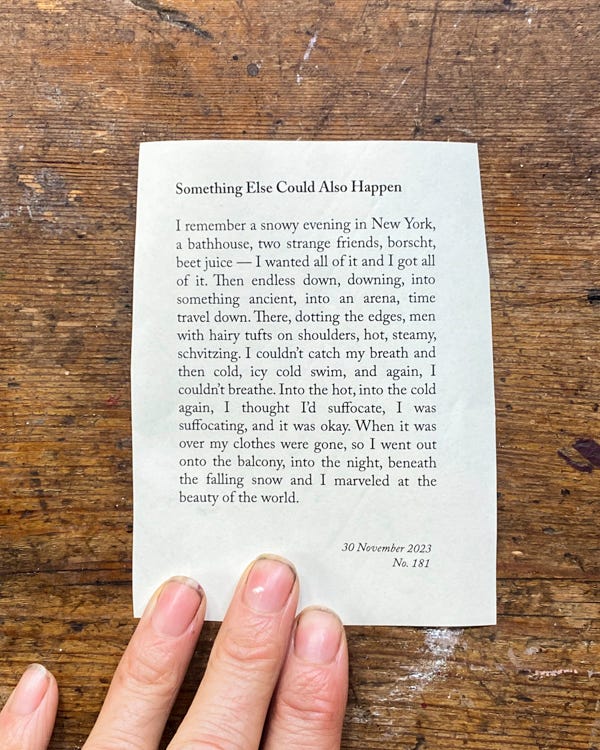 Something Else Could Also Happen
I remember a snowy evening in New York,
a bathhouse, two strange friends, borscht,
beet juice — I wanted all of it and I got all
of it. Then endless down, downing, into
something ancient, into an arena, time
travel down. There, dotting the edges, men
with hairy tufts on shoulders, hot, steamy,
schvitzing. I couldn’t catch my breath and
then cold, icy cold swim, and again, I
couldn’t breathe. Into the hot, into the cold
again, I thought I’d suffocate, I was
suffocating, and it was okay. When it was
over my clothes were gone, so I went out
onto the balcony, into the night, beneath
the falling snow and I marveled at the
beauty of the world.
30 November 2023
No. 181